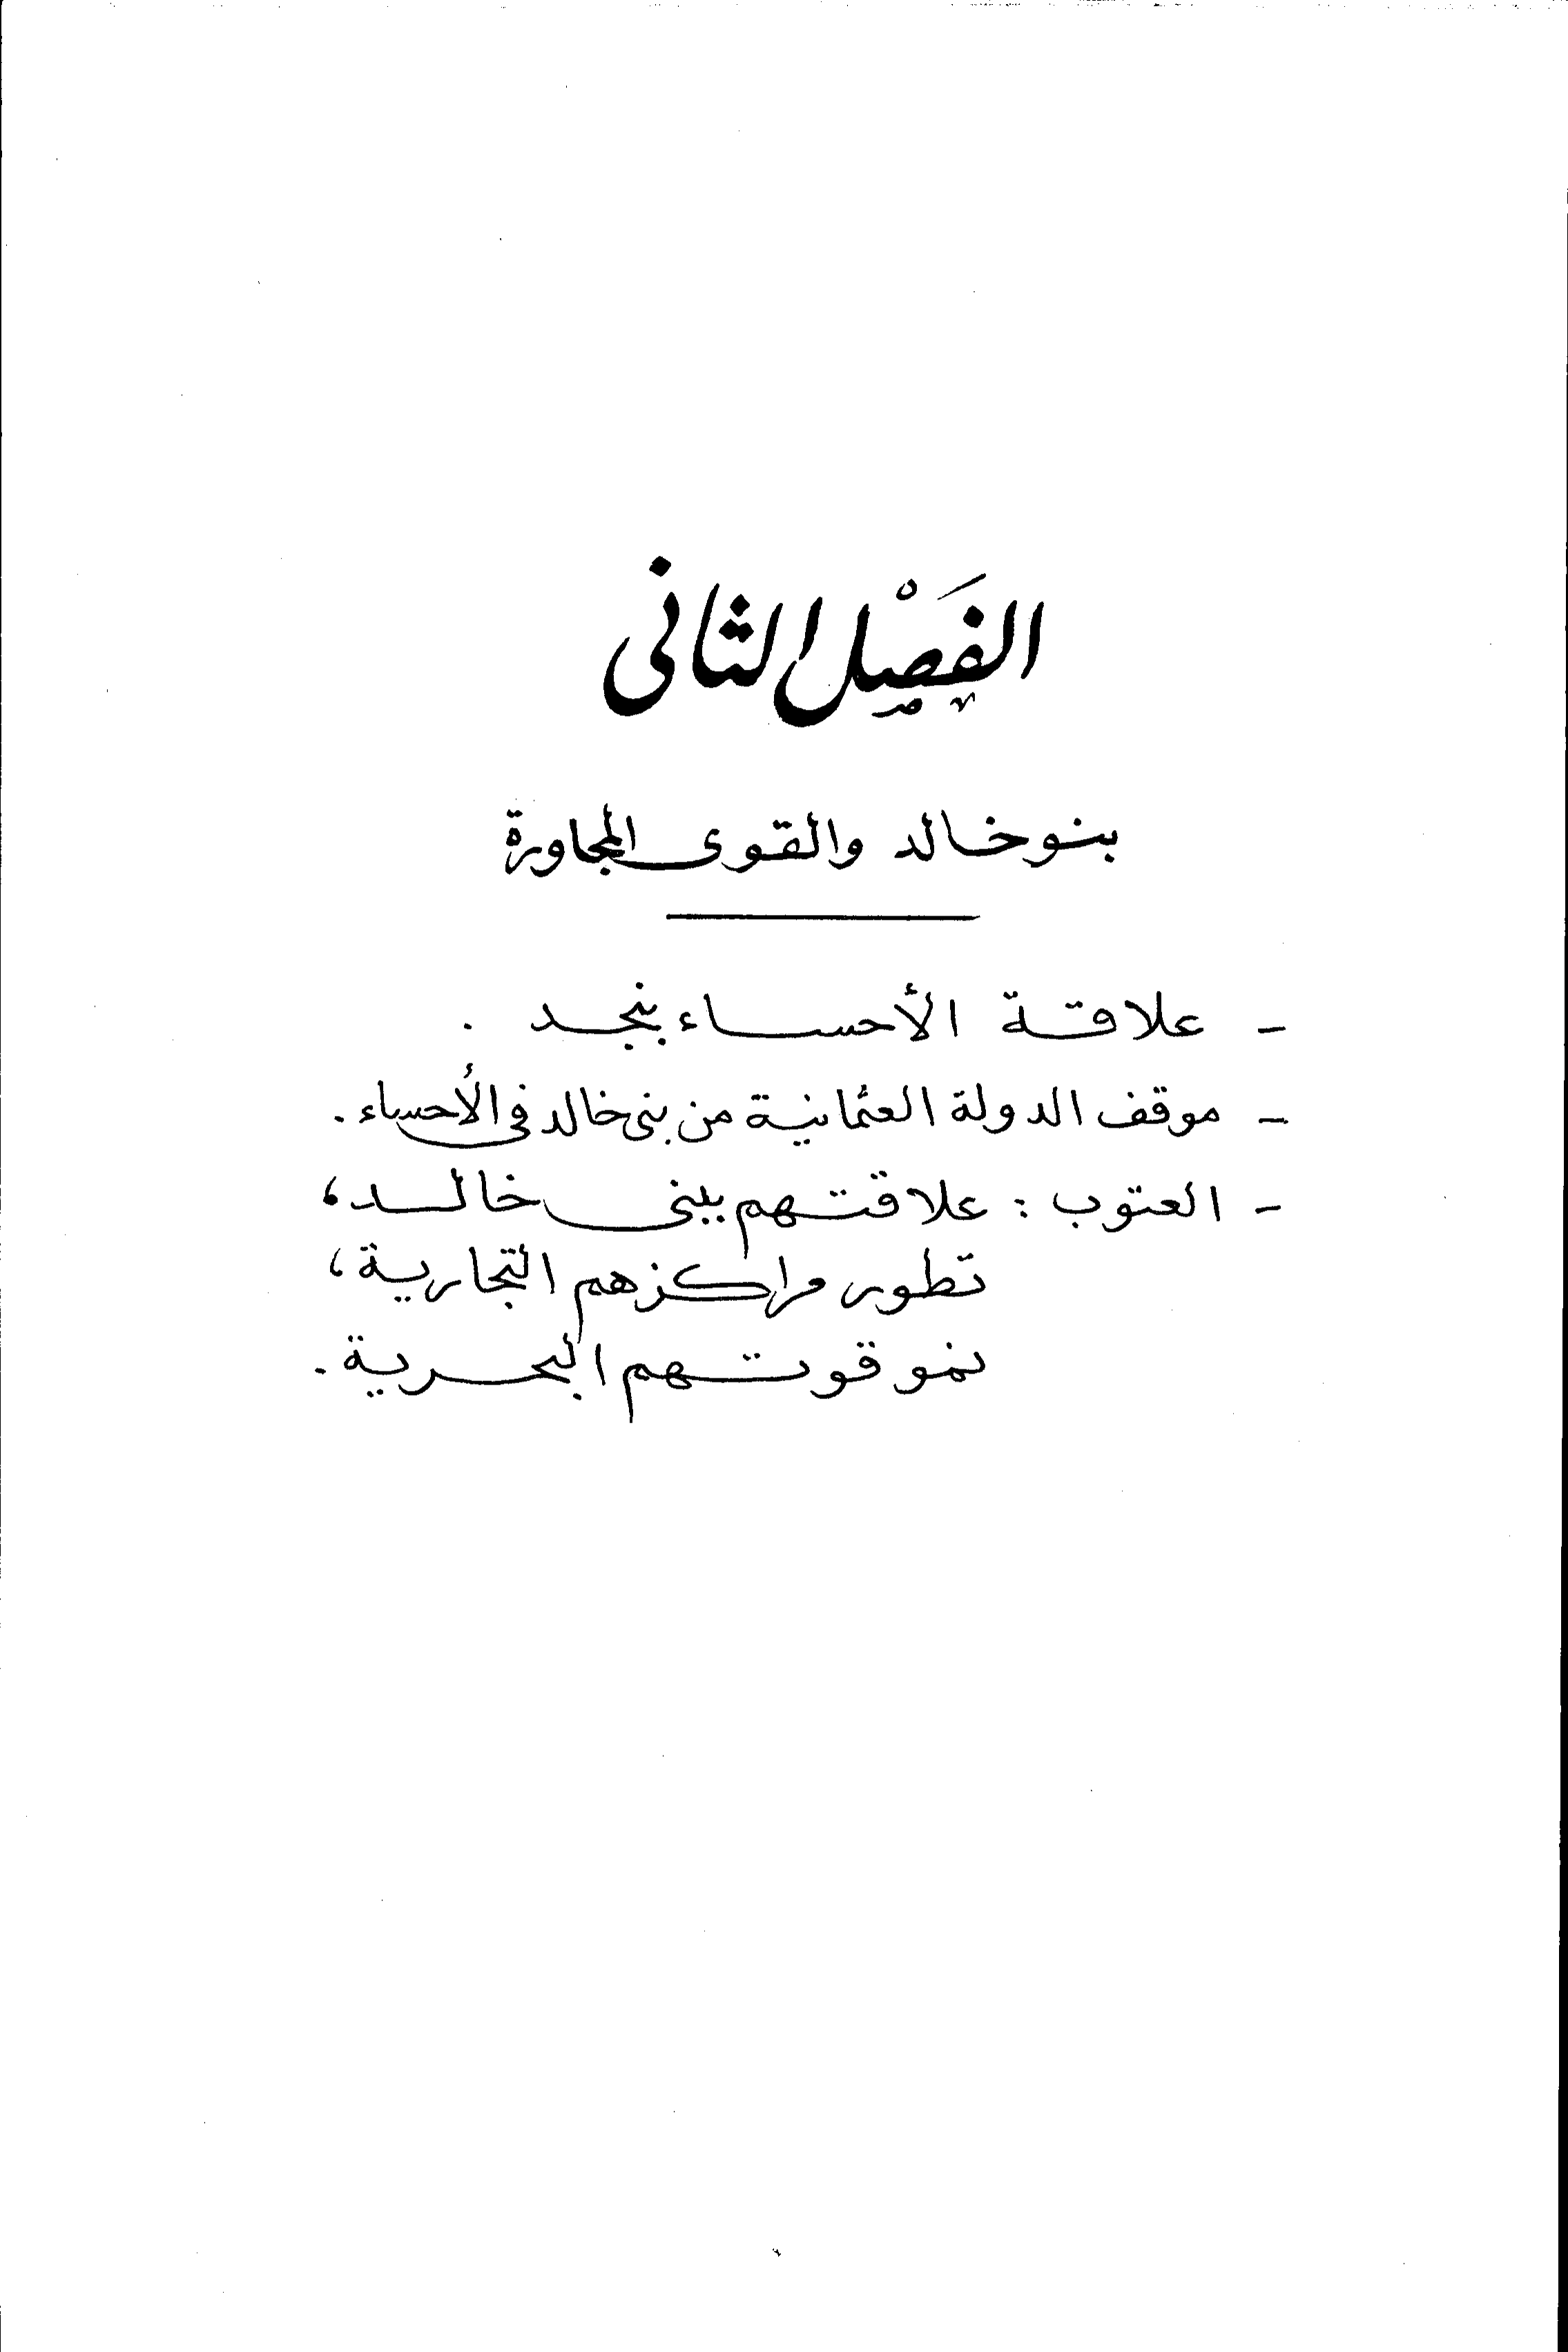 الفَصْل الثانى
بنو خالد والقوى المجاورة
- علاقة الأحساء بنجد .
- موقف الدولة العثمانية من بنى خالد فى الأحساء .
- العتوب : علاقتهم ببنى خالد ،
تطور مراكزهم التجارية ،
نمو قوتهم البحرية .